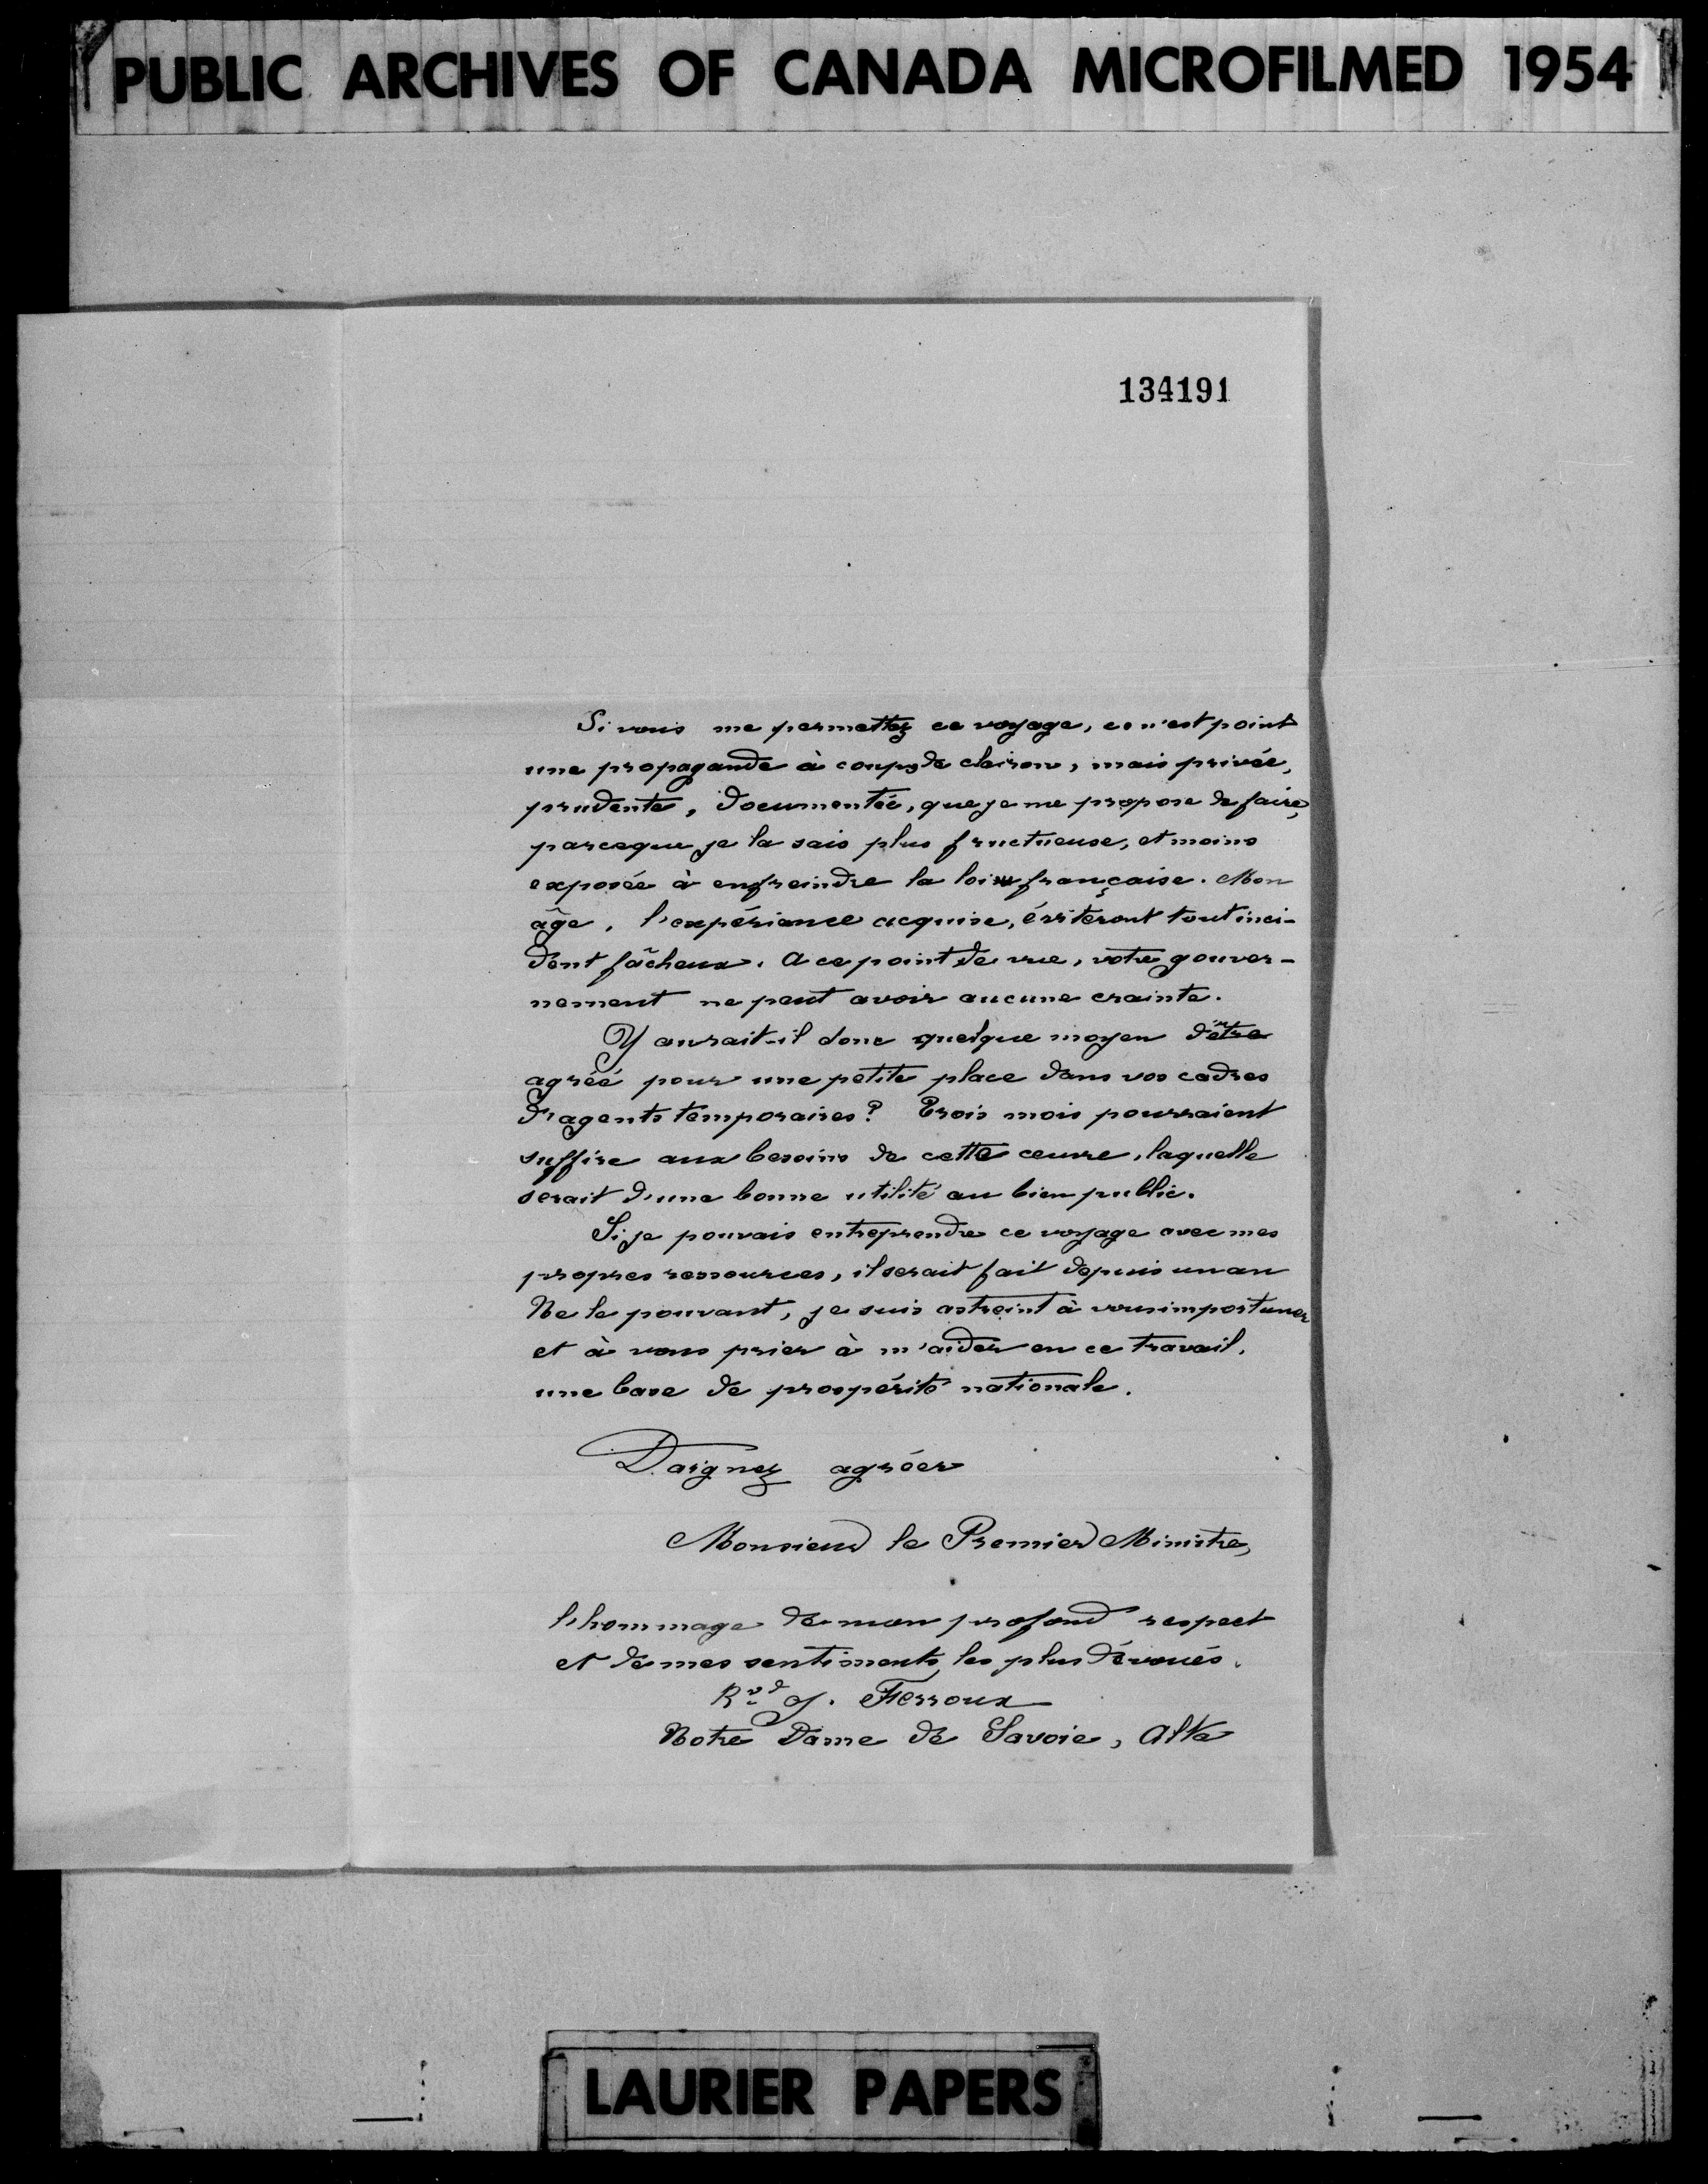 PUBLIC ARCHIVES OF CANADA MICROFILMED 1954
134191
Si vous me permettez ce voyage, ce n'est point
une propagande à coups de clairon, mais privée,
prudente, documentée, que je me propose de faire,
parceque je la sais plus fructueuse, et moins
exposée à enfreindre la loi française. Mon
âge, l'expérience acquise, éviteront tout inci-
dent fâcheux. A ce point de vue, votre gouver-
nement ne peut avoir aucune crainte.
Y aurait-il donc quelque moyen d'être
agréé pour une petite place dans vos cadres
d'agents temporaires? Trois mois pourraient
suffire aux besoins de cette œuvre, laquelle
serait d'une bonne utilité au bien public.
Si je pouvais entreprendre ce voyage avec mes
propres ressources, il serait fait depuis un an
Ne le pouvant, je suis astreint à vous importuner
et à vous prier à m'aider en ce travail,
une base de prospérité nationale.
Daignez agréer
Monsieur le Premier Ministre,
l'hommage de mon profond respect
et de mes sentiments les plus dévoués.
Rvd J. Ferroux
Notre Dame de Savoie, Alta
LAURIER PAPERS